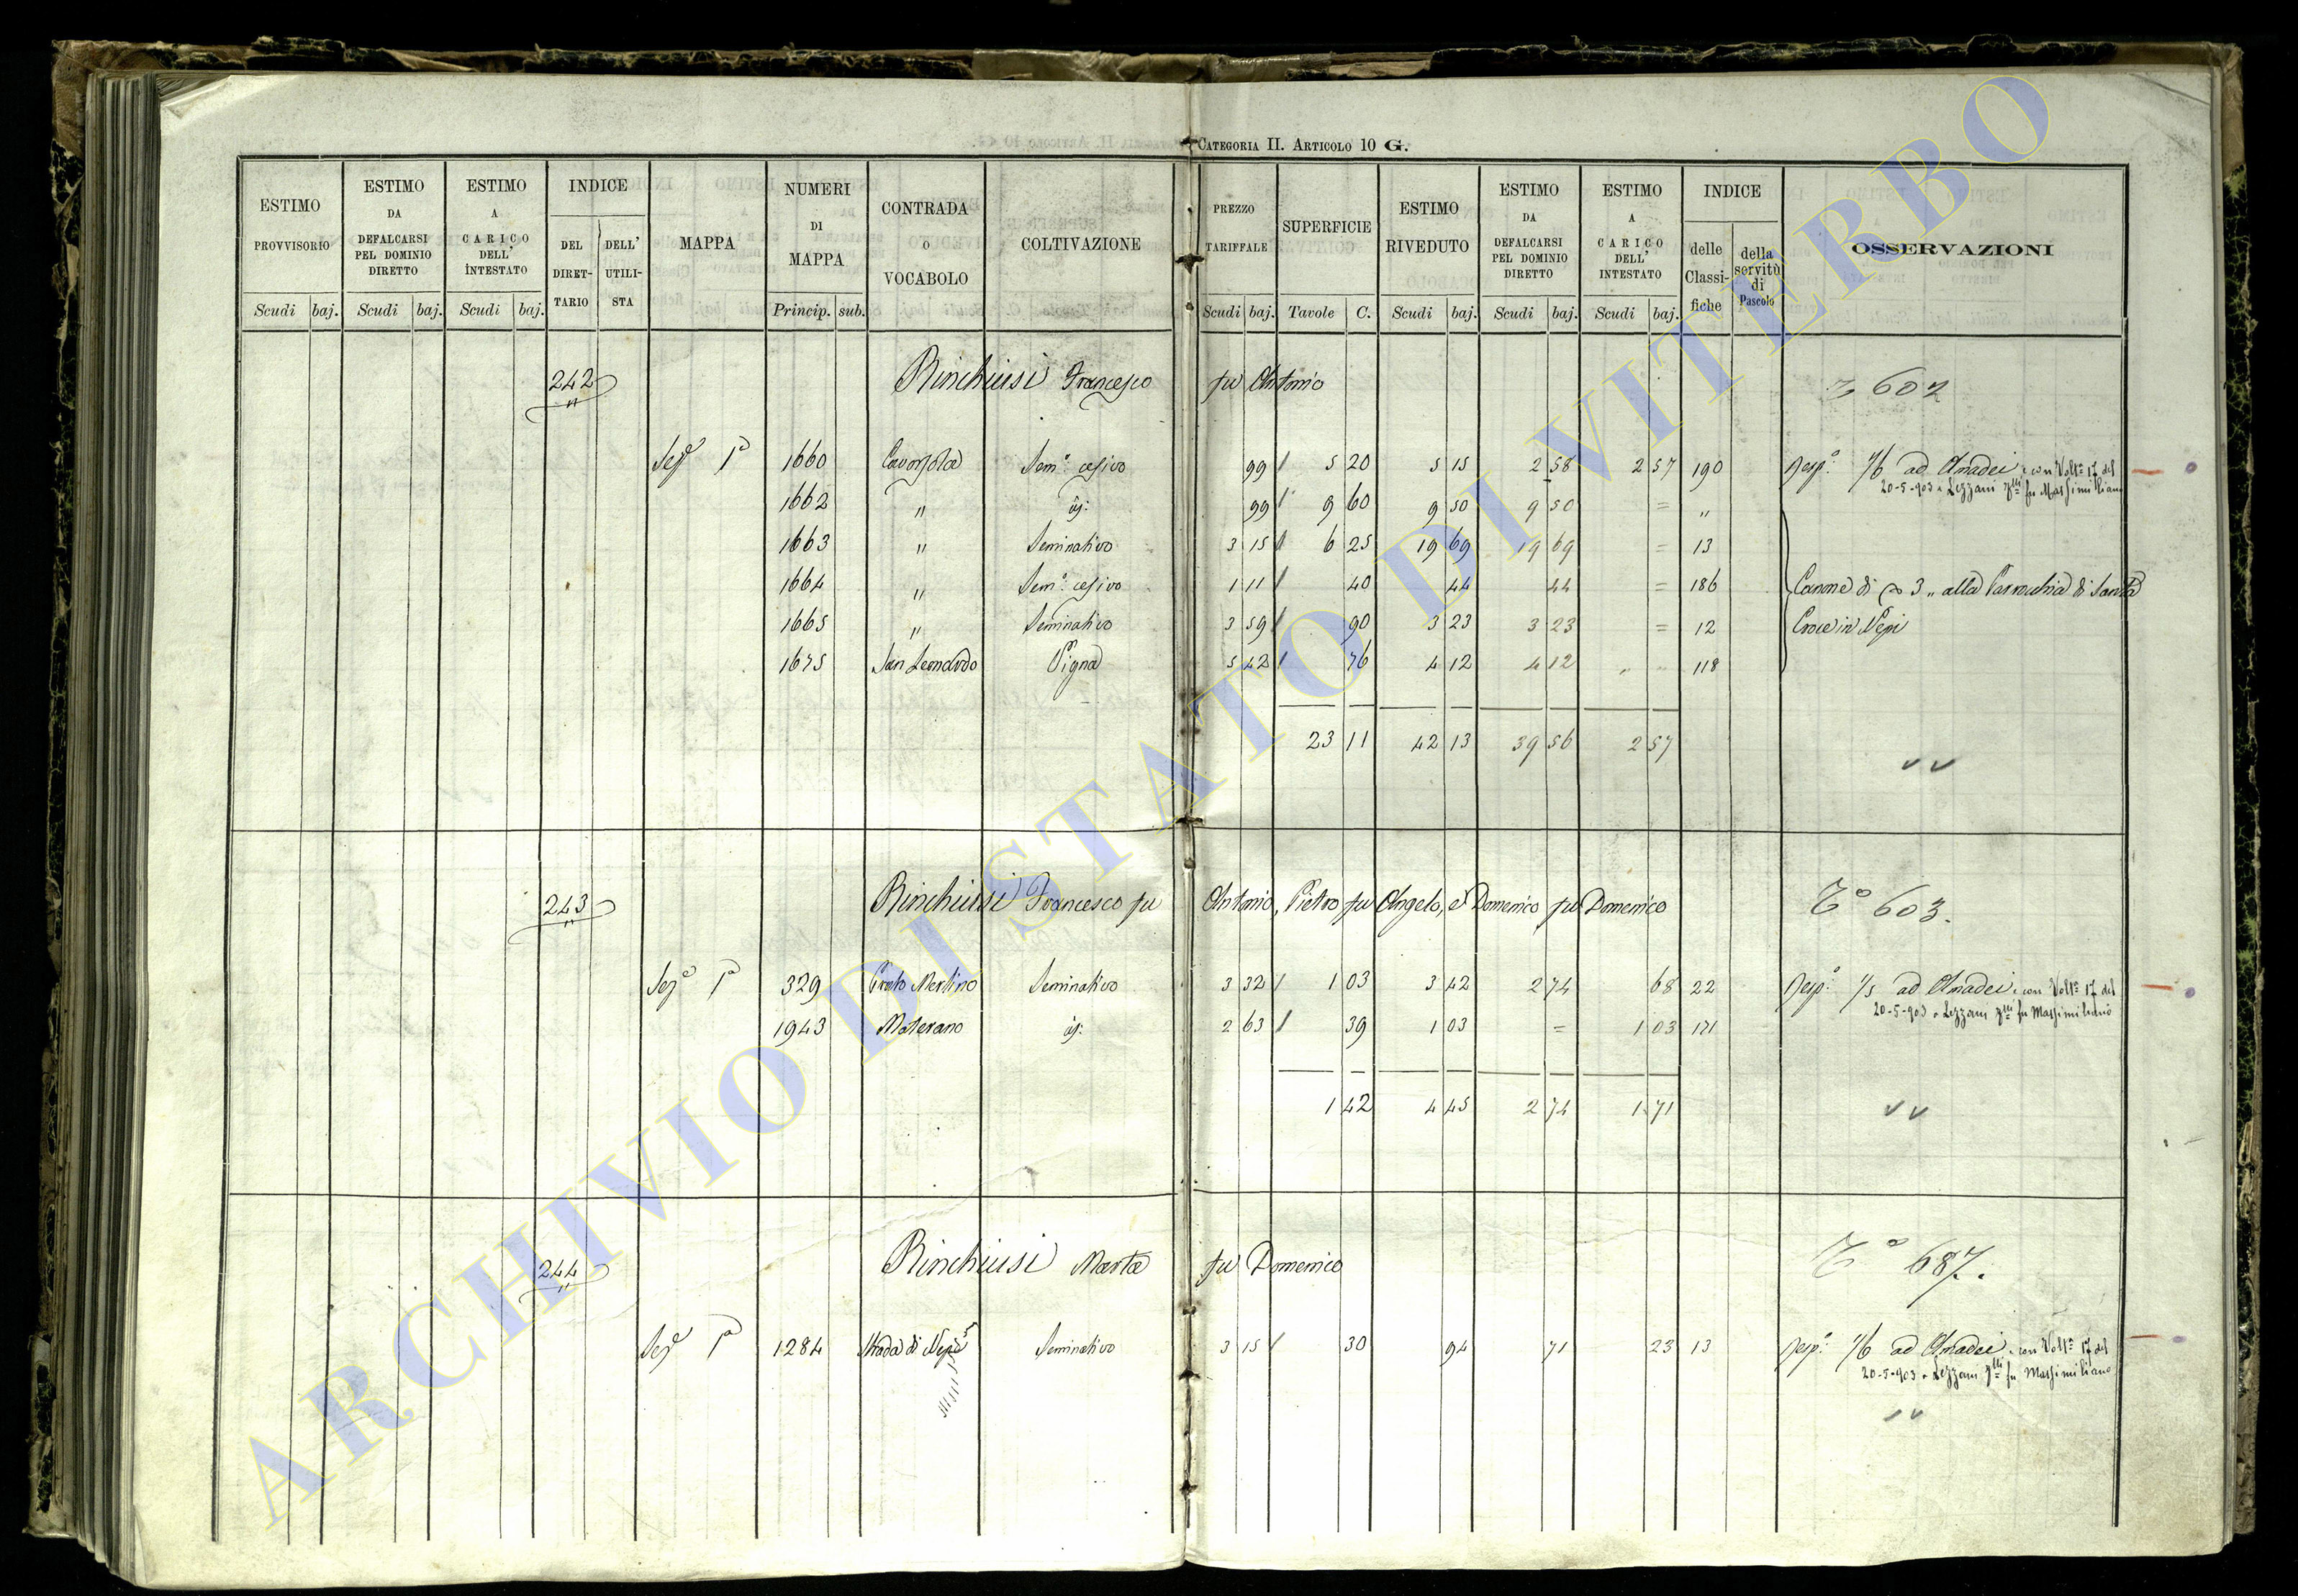 CATEGORIA II. ARTICOLO 10 G.
ESTIMO PROVVISORIO
ESTIMO DA DEFALCARSI PEL DOMINIO DIRETTO
ESTIMO A CARICO DELL' INTESTATO
INDICE
DEL DIRETTARIO
DELL' UTILISTA
MAPPA
NUMERI DI MAPPA
CONTRADA O VOCABOLO
COLTIVAZIONE
PREZZO TARIFFALE
SUPERFICIE
ESTIMO RIVEDUTO
ESTIMO DA DEFALCARSI PEL DOMINIO DIRETTO
ESTIMO A CARICO DELL' INTESTATO
INDICE
delle Classifiche
della servitù di Pascolo
OSSERVAZIONI
Scudi baj. Scudi baj. Scudi baj. Princip. sub. Scudi baj. Tavole C. Scudi baj. Scudi baj. Scudi baj.
242 Rinchiusi Francesco fu Antonio 602
1660 Sem.º cesivo 99 5 20 5 15 2 58 2 57 190 1/6 ad Amadei con Volt.ª 17 del
20-5-903 a Lezzani fu Massimiliano
1662 " 99 9 60 9 50 9 50 = "
1663 " Seminativo 3 15 6 25 19 69 19 69 = 13
1664 " Sem.º cesivo 1 11 40 44 44 = 186 Canone di 3 " alla Parrochia di Santa
1665 " Seminativo 3 59 90 3 23 3 23 = 12 Croce in Nepi
1675 San Leonardo Vigna 5 42 76 4 12 4 12 " " 118
23 11 42 13 39 56 2 57
243 Rinchiusi Francesco fu Antonio, Pietro fu Angelo, e Domenico fu Domenico Tº 603.
329 Prato Merlino Seminativo 3 32 1 03 3 42 2 74 68 22 1/5 ad Amadei con Volt.ª 17 del
20-5-903 a Lezzani fu Massimiliano
1943 Materano 2 63 39 1 03 = 1 03 171
1 42 4 45 2 74 1 71
244 Rinchiusi Marta fu Domenico Tº 687.
1284 Strada di Nepi Seminativo 3 15 30 94 71 23 13 1/6 ad Amadei con Volt.ª 17 del
20-5-903 a Lezzani fu Massimiliano
ARCHIVIO DI STATO DI VITERBO